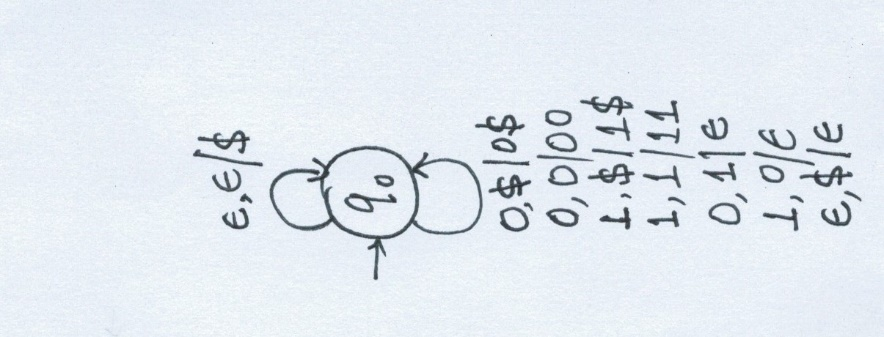 ε,ε/$
q0
0,$/0$
0,0/00
1,$/1$
1,1/11
0,1/ε
1,0/ε
ε,$/ε